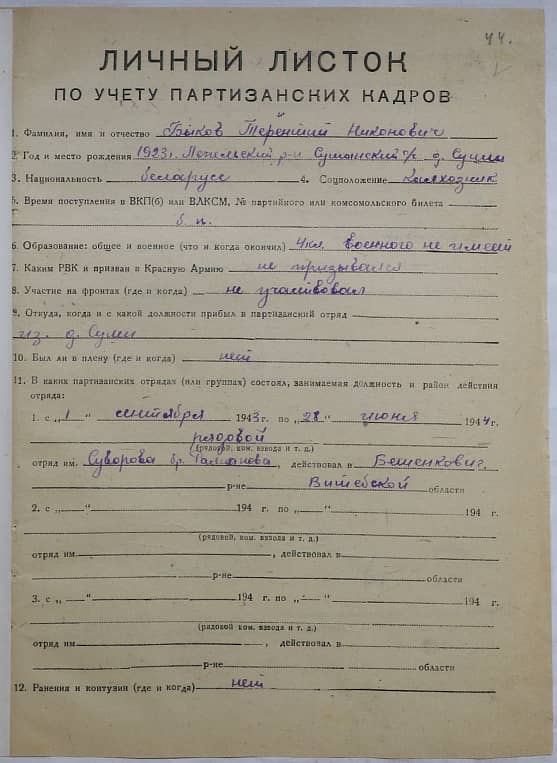 44.
ЛИЧНЫЙ ЛИСТОК
ПО УЧЕТУ ПАРТИЗАНСКИХ КАДРОВ
1. Фамилия, имя и отчество Быков Терентий Никонович
2. Год и место рождения 1923 г. Лепельский р-н Сушанский с/с д. Суши
3. Национальность беларусс 4. Соцположение калхозник
5. Время поступления в ВКП(б) или ВЛКСМ, № партийного или комсомольского билета
б. п.
6. Образование: общее и военное (что и когда окончил) 4 кл. военного не имеет
7. Каким РВК и призван в Красную Армию не призывался
8. Участие на фронтах (где и когда) не участвовал
9. Откуда, когда и с какой должности прибыл в партизанский отряд
из д. Суши
10. Был ли в плену (где и когда) нет
11. В каких партизанских отрядах (или группах) состоял, занимаемая должность и район действия
отряда:
1. с „1" сентября 1943 г. по „28" июня 1944 г.
рядовой
(рядовой, ком. взвода и т. д.)
отряд им. Суворова бр. , действовал в Бешенкович.
р-не Витебской области
2. с „ " 194 г. по „ " 194 г.
(рядовой, ком. взвода и т. д.)
отряд им. , действовал в
р-не области
3. с „ " 194 г. по „ " 194 г.
(рядовой ком. взвода и т. д.)
отряд им. , действовал в
р-не области
12. Ранения и контузии (где и когда) нет